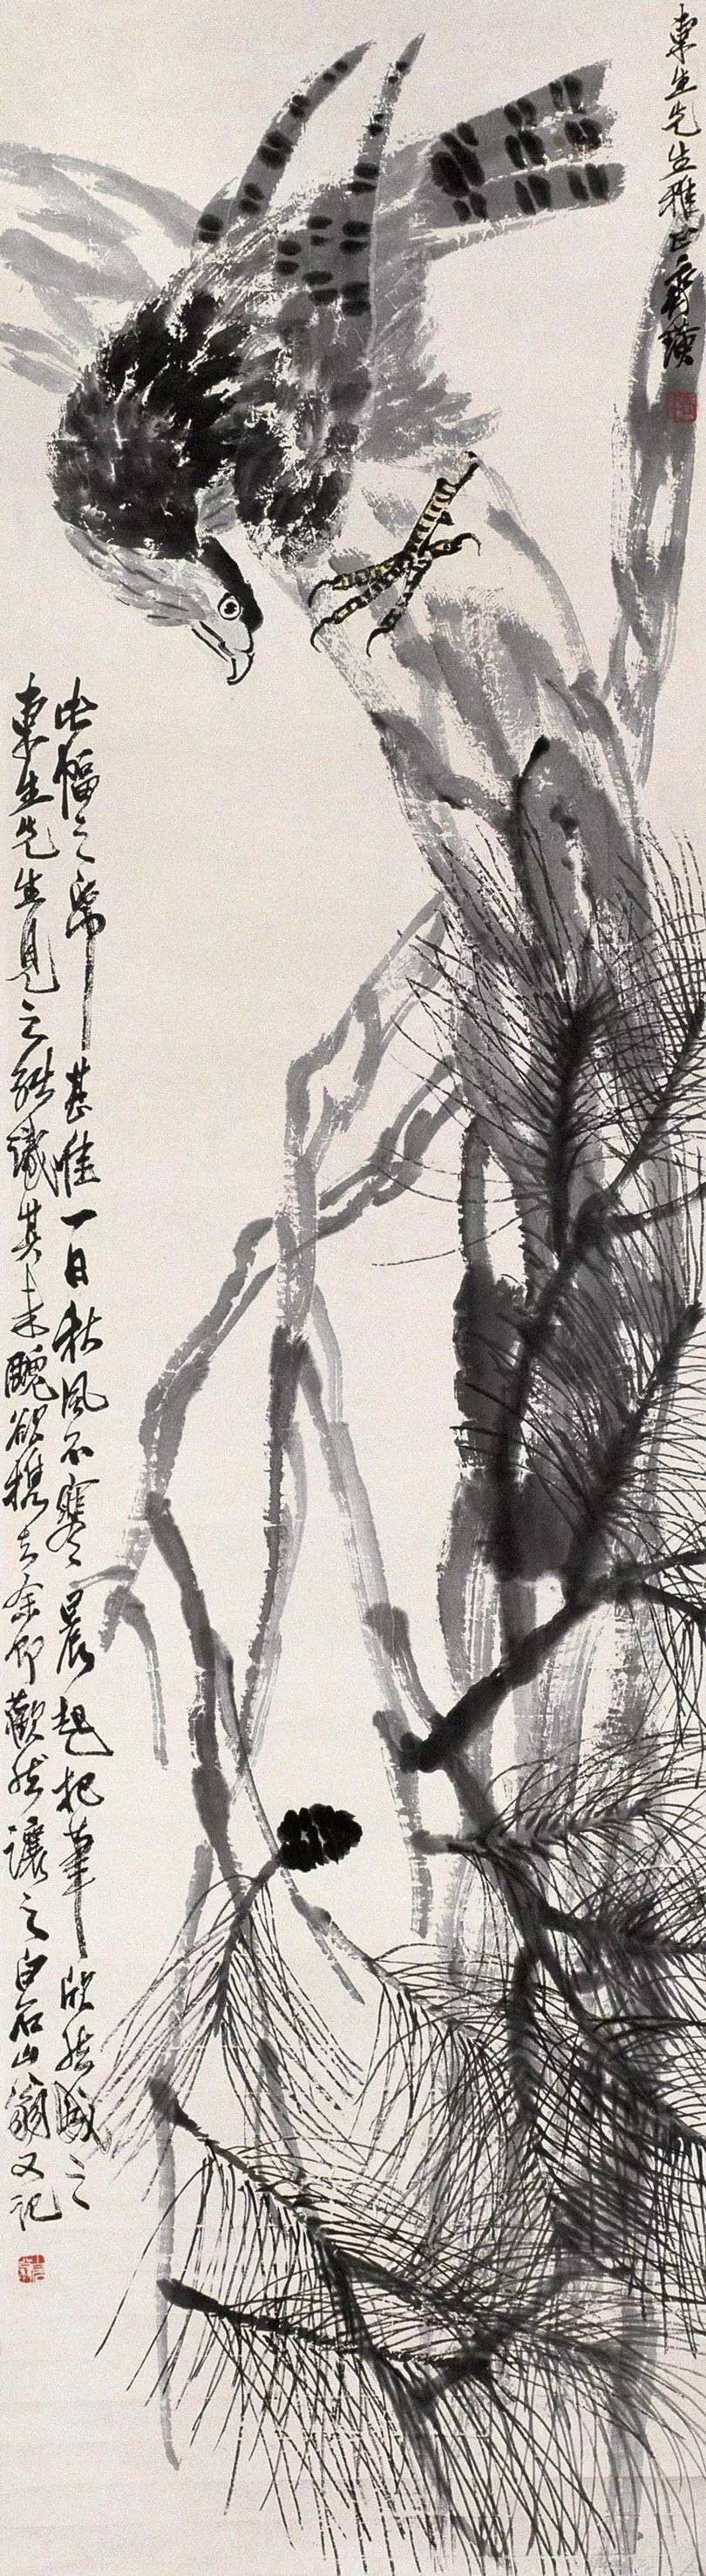 東生先生雅正齊璜
此幅之帋甚佳一日秋風不寒晨起把筆欣然成之
東生先生見之能識其未醜欲携去余即歡然讓之白石山翁又記